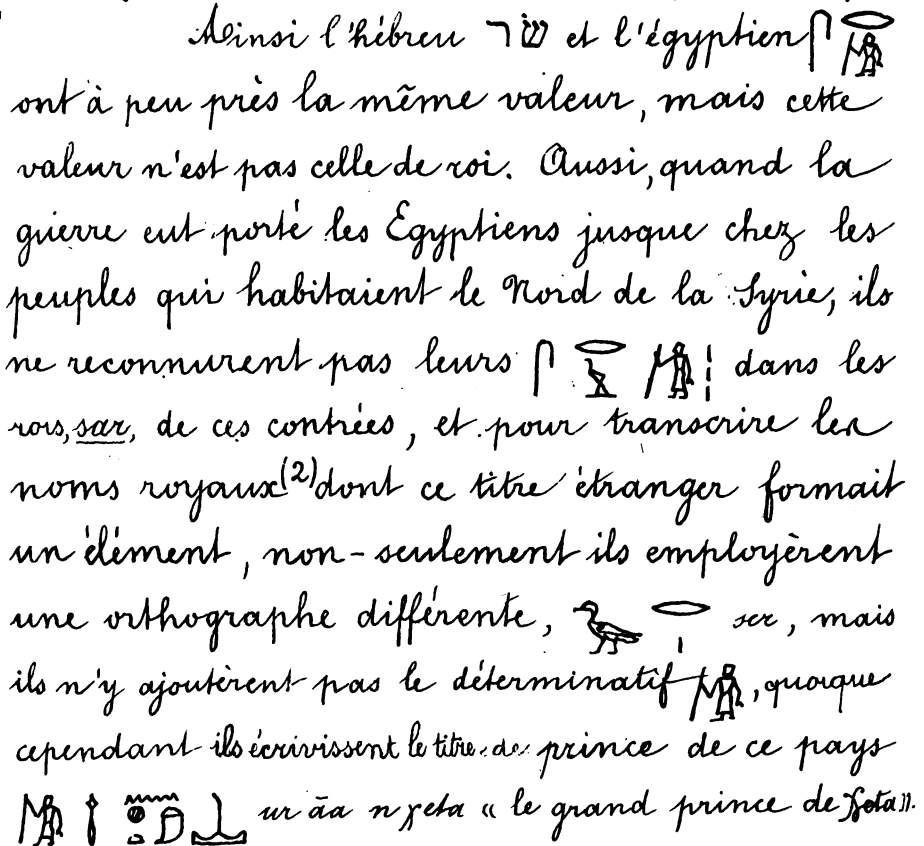 Ainsi l'hébreu שׂר et l'égyptien
ont à peu près la même valeur, mais cette
valeur n'est pas celle de roi. Aussi, quand la
guerre eut porté les Égyptiens jusque chez les
peuples qui habitaient le Nord de la Syrie, ils
ne reconnurent pas leurs dans les
rois, sar, de ces contrées, et pour transcrire les
noms royaux (2) dont ce titre étranger formait
un élément, non-seulement ils employèrent
une orthographe différente, ser, mais
ils n'y ajoutèrent pas le déterminatif, quoique
cependant ils écrivissent le titre de prince de ce pays
ur āa n χeta « le grand prince de »